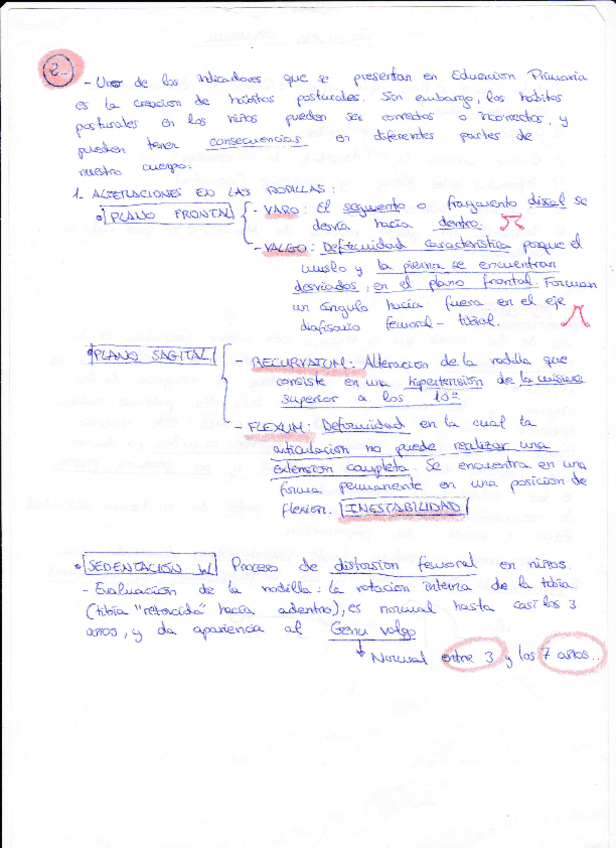 2-
- Uno de los indicadores que se presentan en Educacion Primaria
es la creacion de hábitos posturales. Sin embargo, los hábitos
posturales en los niños pueden ser correctos o incorrectos, y
pueden tener consecuencias en diferentes partes de
nuestro cuerpo.
1- ALTERACIONES EN LAS RODILLAS:
• PLANO FRONTAL
- VARO: El segmento o fragmento distal se
desvia hacia dentro.
- VALGO: Deformidad caracteristica porque el
muslo y la pierna se encuentran
desviados, en el plano frontal. Forman
un ángulo hacia fuera en el eje
diafisario femoral - tibial.
• PLANO SAGITAL
- RECURVATUM: Alteracion de la rodilla que
consiste en una hipertension de la misma
superior a los 10º.
- FLEXUM: Deformidad en la cual la
articulación no puede realizar una
extension completa. Se encuentra en una
forma permanente en una posicion de
flexion. INESTABILIDAD
• SEDENTACIÓN W Proceso de distorsion femoral en niños.
- Evaluación de la rodilla: la rotacion interna de la tibia.
(tibia "retorcida" hacia adentro), es normal hasta casi los 3
años, y da apariencia al Genu valgo
↓ Normal entre 3 y los 7 años..